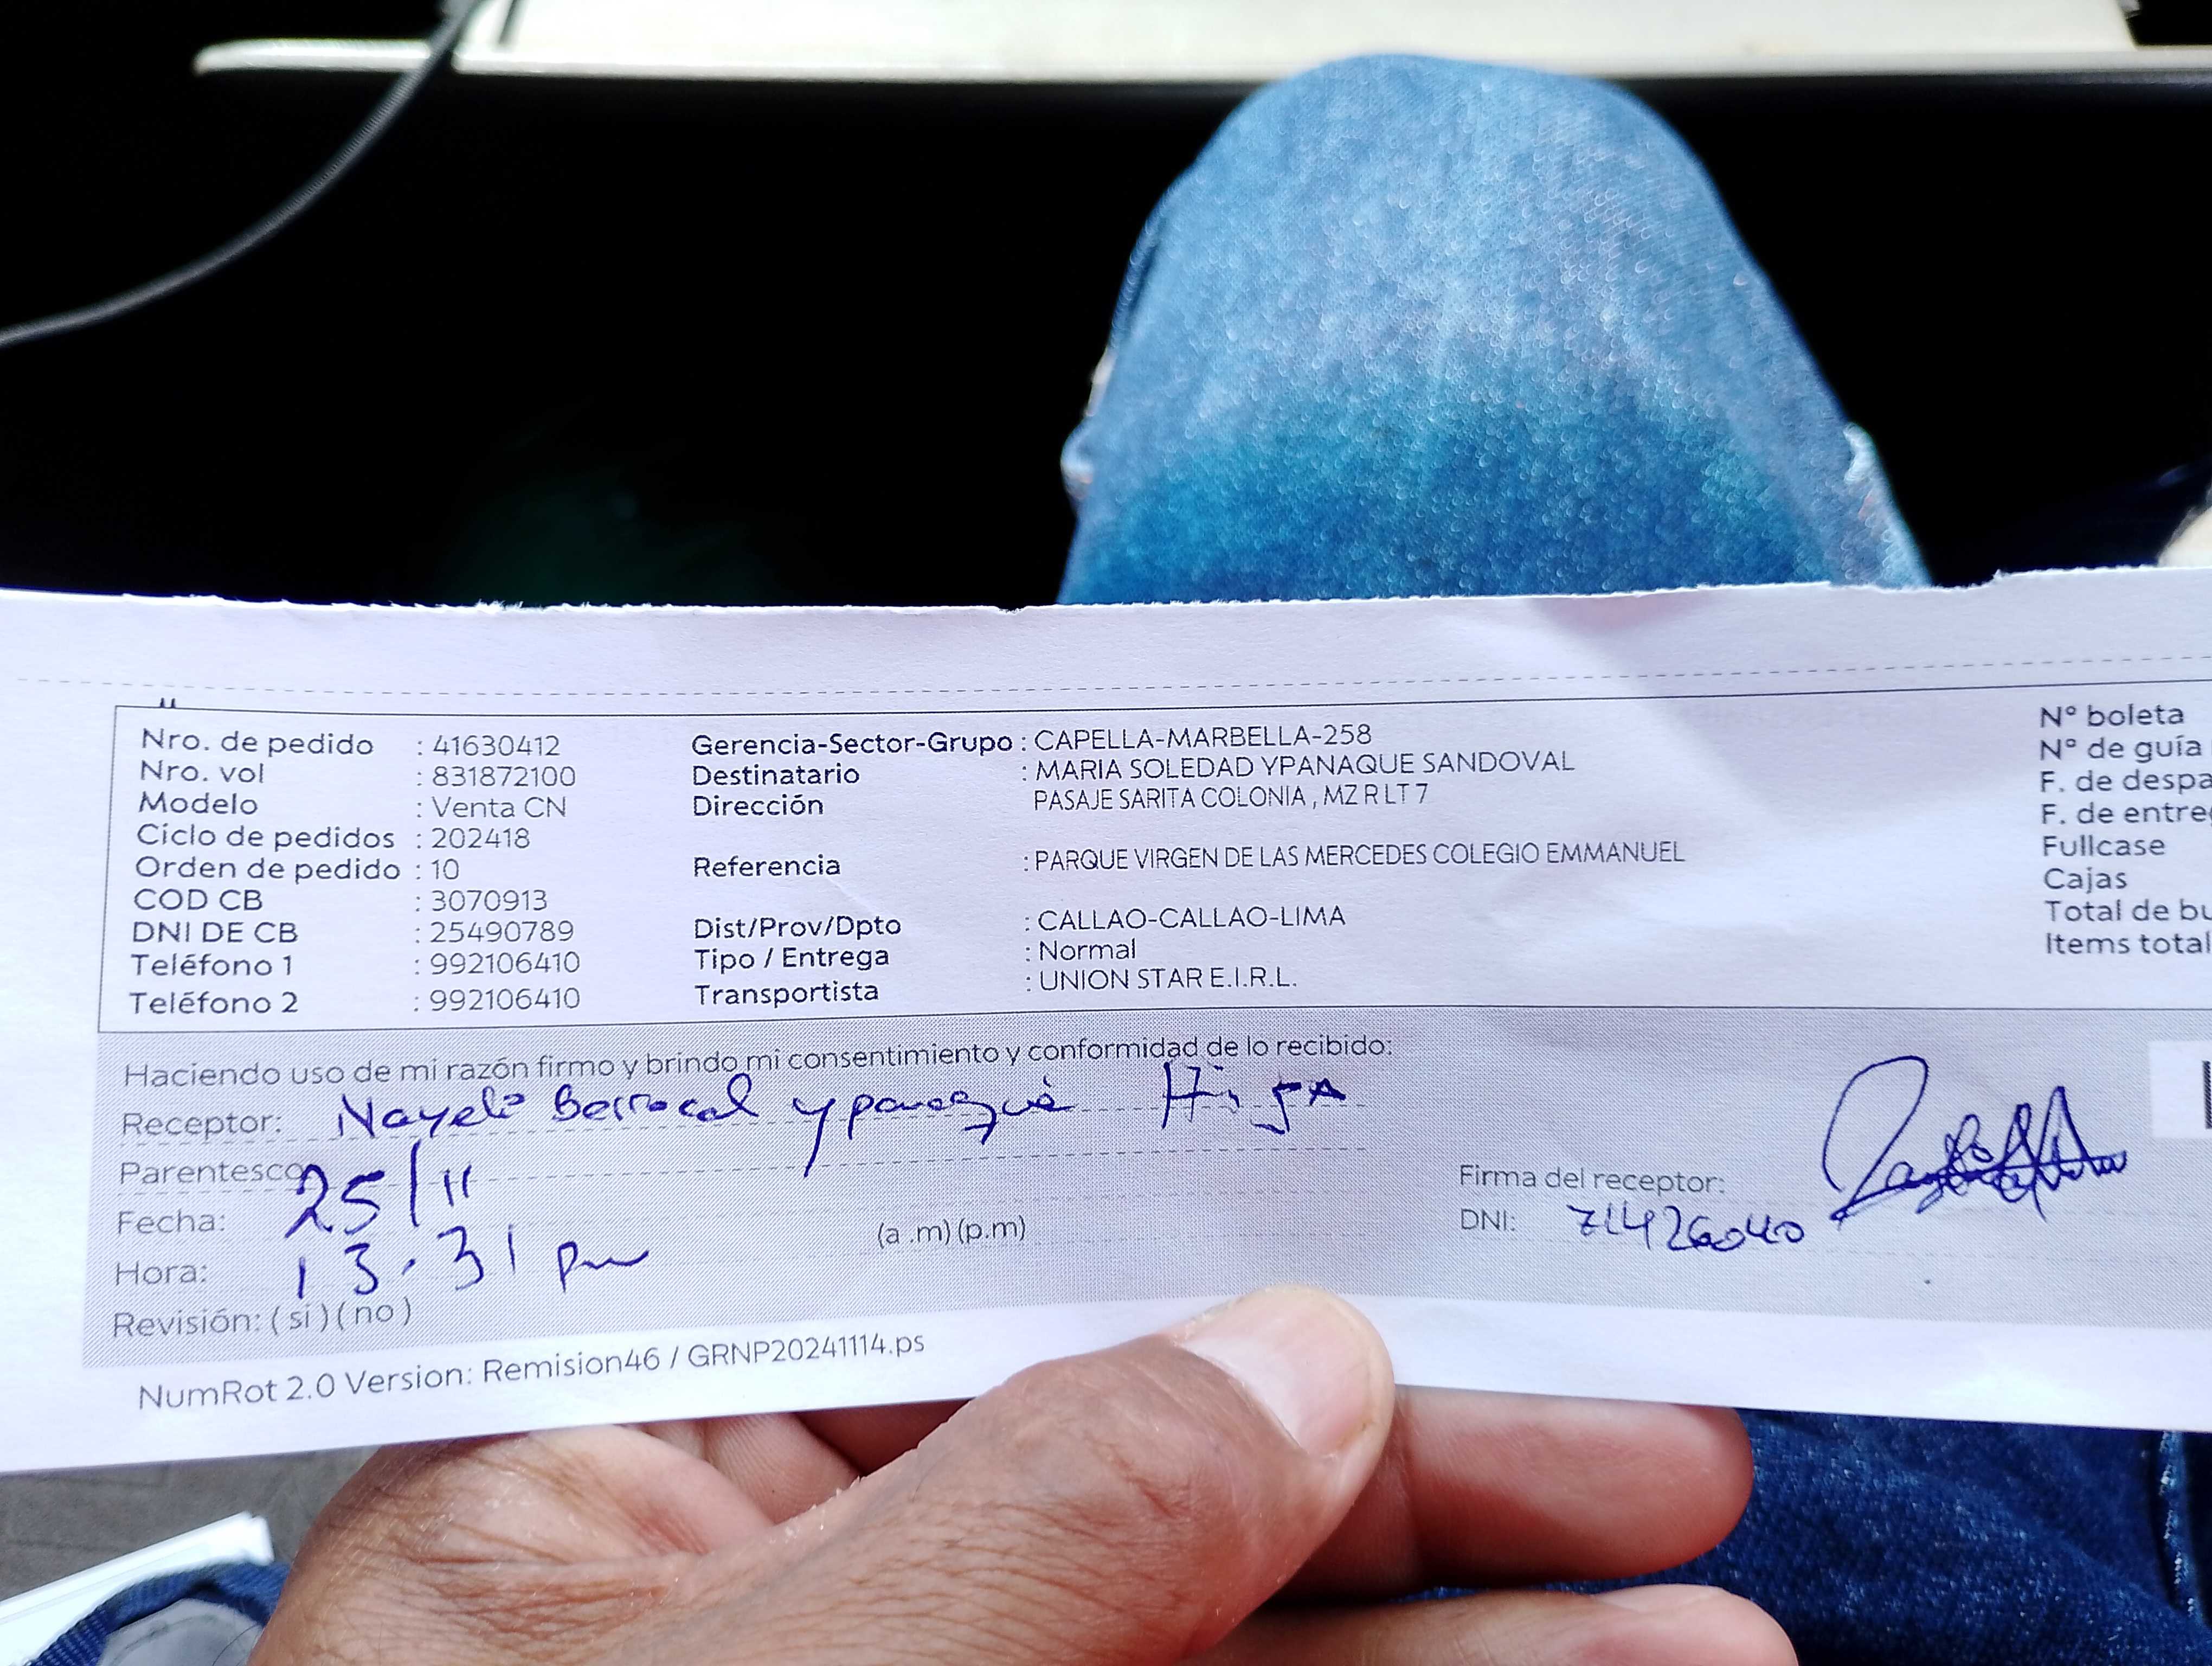 Nro. de pedido : 41630412
Nro. vol : 831872100
Modelo : Venta CN
Ciclo de pedidos : 202418
Orden de pedido : 10
COD CB : 3070913
DNI DE CB : 25490789
Teléfono 1 : 992106410
Teléfono 2 : 992106410
Gerencia-Sector-Grupo : CAPELLA-MARBELLA-258
Destinatario : MARIA SOLEDAD YPANAQUE SANDOVAL
Dirección PASAJE SARITA COLONIA , MZ R LT 7
Referencia : PARQUE VIRGEN DE LAS MERCEDES COLEGIO EMMANUEL
Dist/Prov/Dpto : CALLAO-CALLAO-LIMA
Tipo / Entrega : Normal
Transportista : UNION STAR E.I.R.L.
N° boleta
N° de guía
F. de despa
F. de entre
Fullcase
Cajas
Total de bu
Items total
Haciendo uso de mi razón firmo y brindo mi consentimiento y conformidad de lo recibido:
Receptor: Nayeli Berrocal ypanaqué HijA
Parentesco
Fecha: 25/11
Hora: 13.31 pm (a .m) (p.m)
Revisión: ( si ) ( no )
Firma del receptor:
DNI:
NumRot 2.0 Version: Remision46 / GRNP20241114.ps